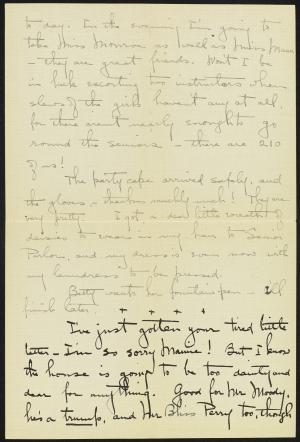 to day. In the evening I'm going to
take Miss Monroe as well as Miss Mann
- they are great friends. Won't I be
in luck escorting two instructors when
slews of the girls haven't any at all,
for there aren't nearly enough to go
round the seniors - there are 210
of us!
The party cape arrived safely, and
the gloves, - thanks muchly much! They're
very pretty. I got a dear little wreath of
daisies to wear in my hair to Senior
Parlors, and my dress is even now with
my laundress to be pressed.
Betty wants her fountain pen - I'll
finish later.
+ + + +
I've just gotten your tired little
letter - I'm so sorry Mamie! But I know
the house is going to be too dainty and
dear for anything. Good for Mr. Moody,
he's a trump, and Mr Bliss Perry too, though